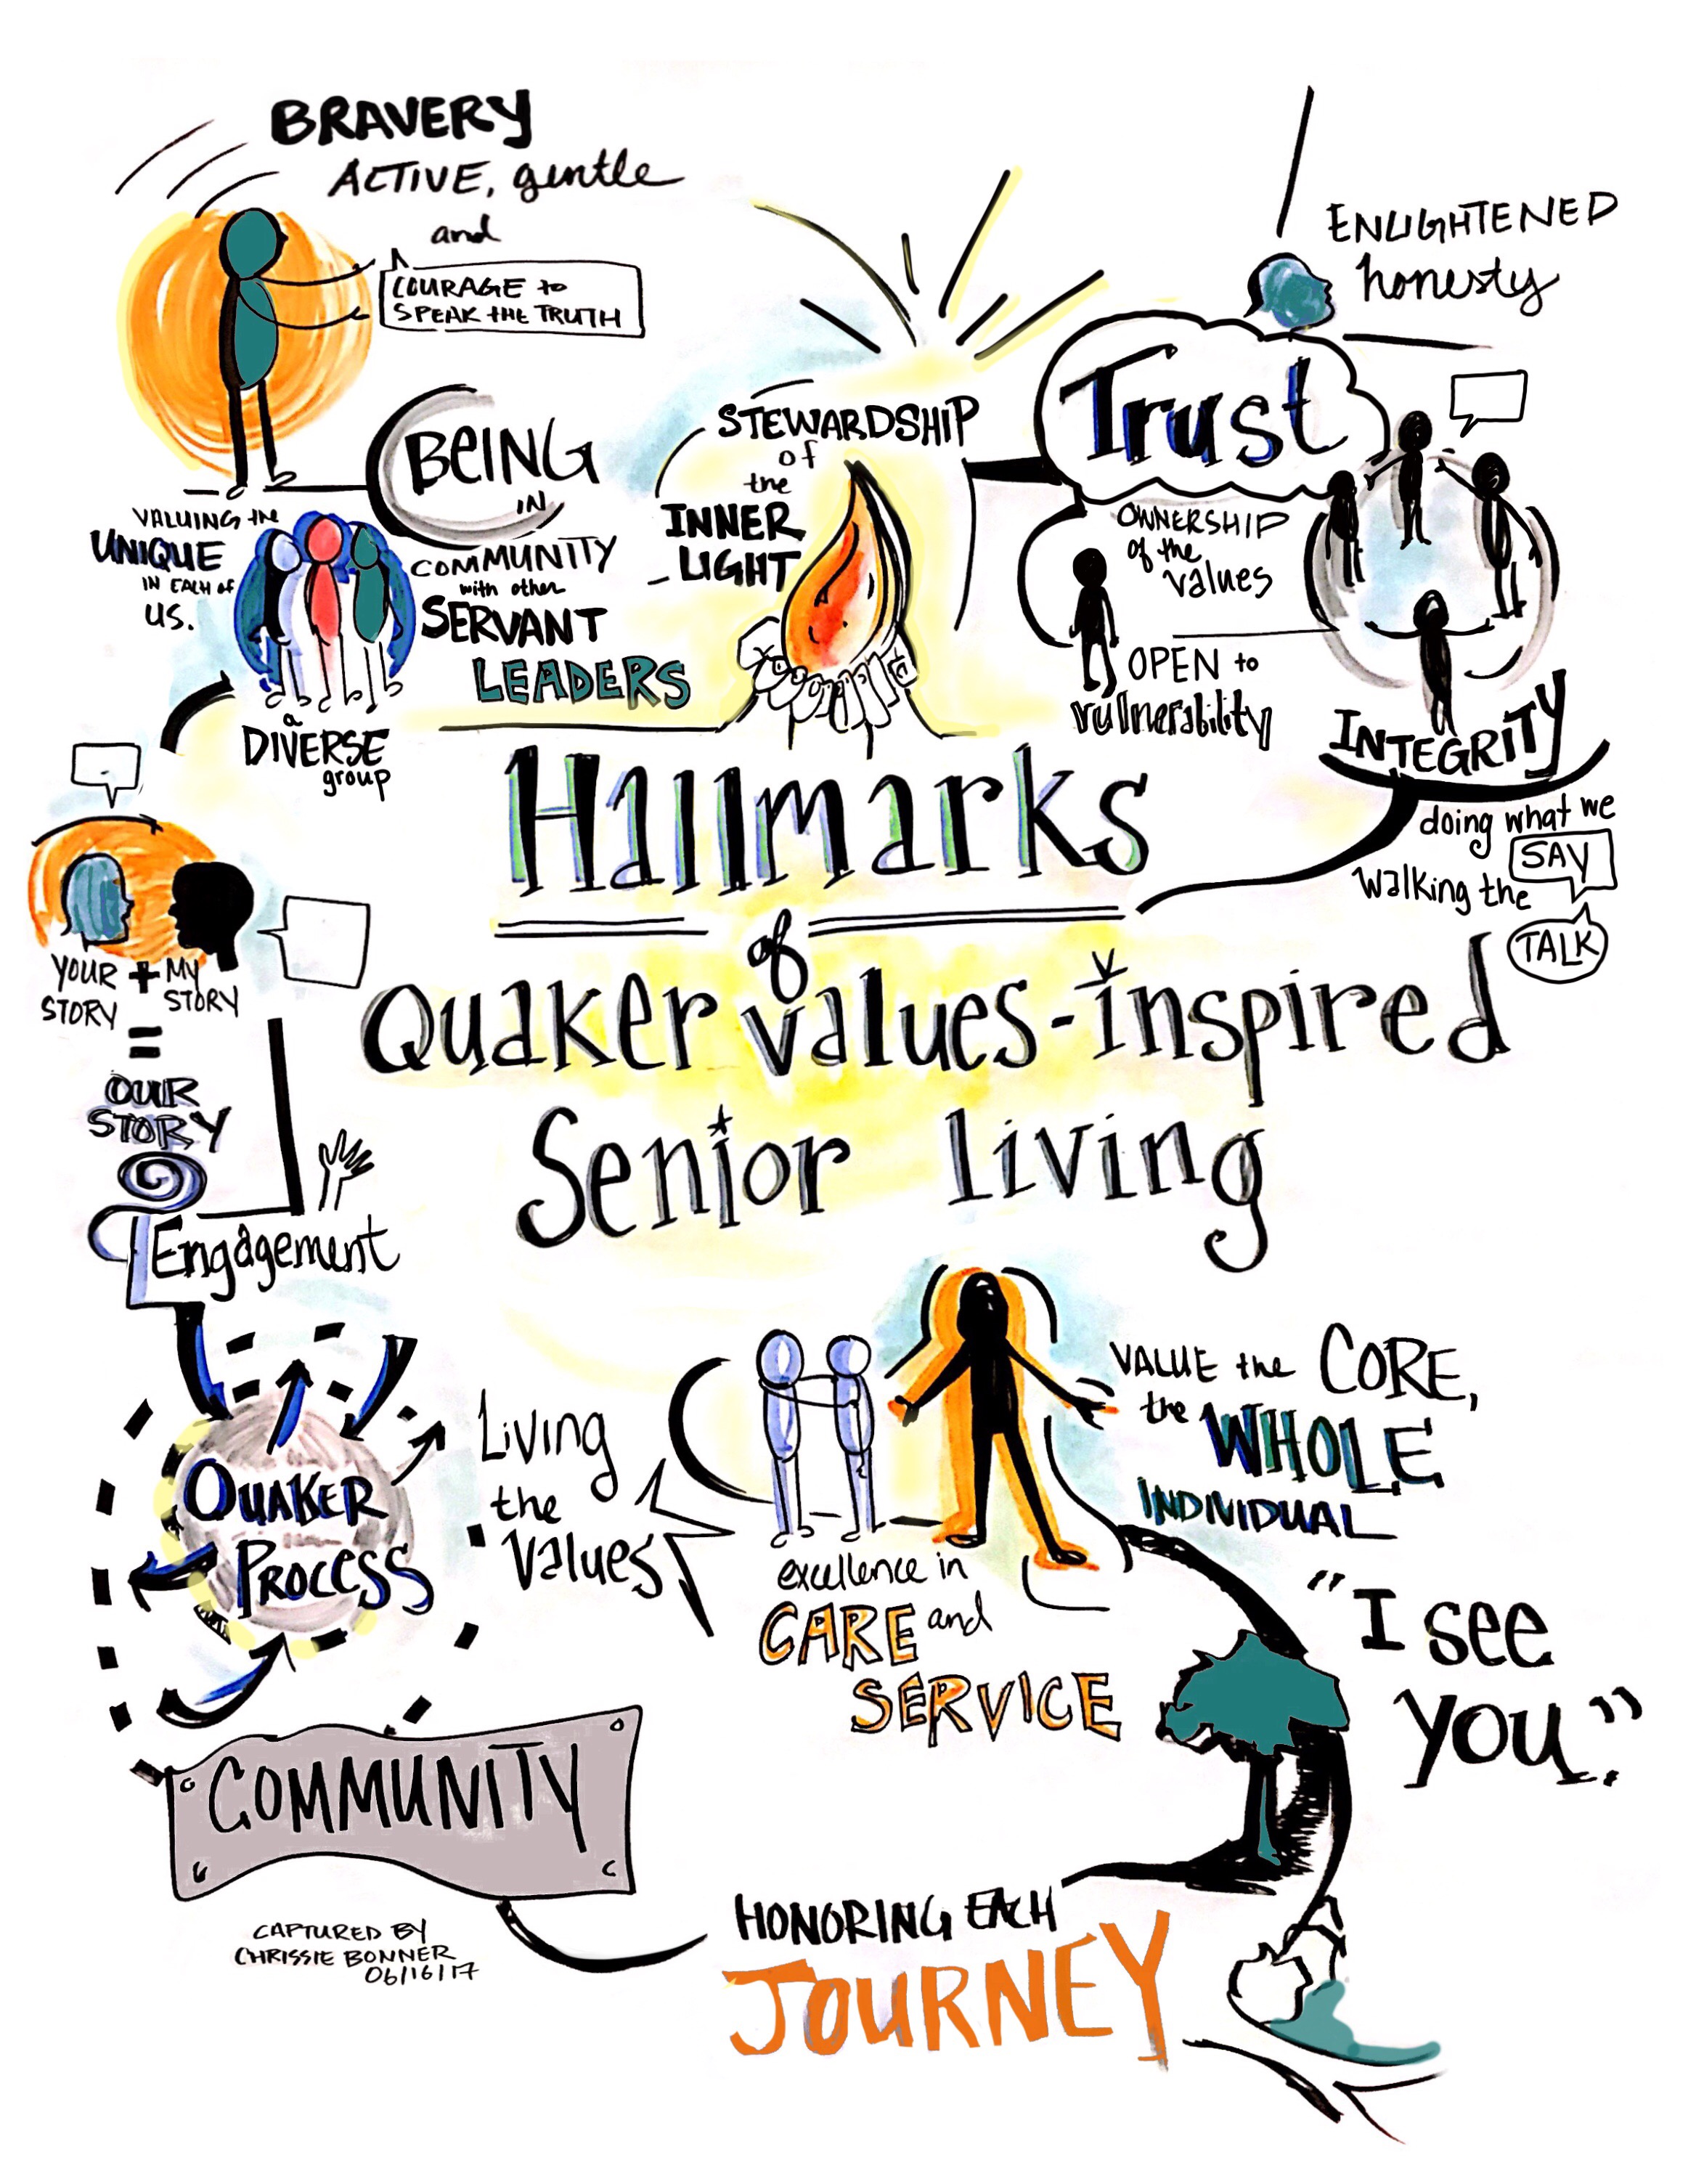 BRAVERY
ACTIVE, gentle
and
COURAGE to
SPEAK THE TRUTH
ENLIGHTENED
honesty
Trust
OWNERSHIP
of the
values
OPEN to
vulnerability
INTEGRITY
doing what we
SAY
walking the
TALK
BEING
IN
COMMUNITY
with other
SERVANT
LEADERS
STEWARDSHIP
of
the
INNER
LIGHT
VALUING the
UNIQUE
IN EACH of
US.
a
DIVERSE
group
Hallmarks
of
Quaker values-inspired
Senior living
YOUR + MY
STORY STORY
=
OUR
STORY
Engagement
QUAKER
PROCESS
Living
the
values
excellence in
CARE and
SERVICE
VALUE the CORE,
the WHOLE
INDIVIDUAL
"I see
you".
COMMUNITY
HONORING EACH
JOURNEY
CAPTURED BY
CHRISSIE BONNER
06/16/17